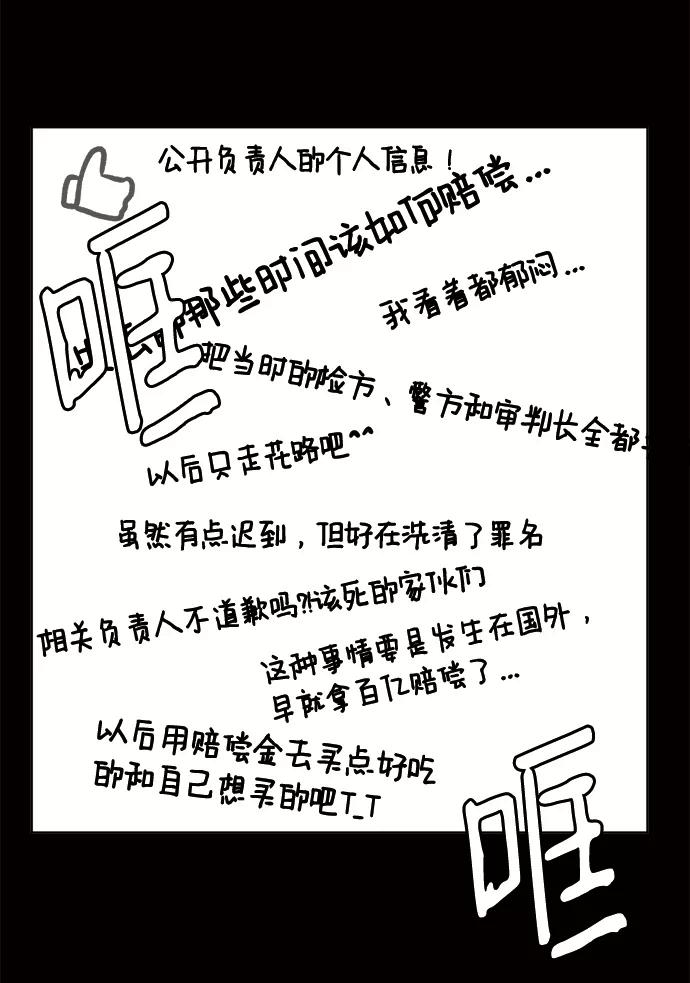 公开负责人的个人信息！
那些时间该如何赔偿...
我看着都郁闷...
哐
把当时的检方、警方和审判长全都
以后只走花路吧^^
虽然有点迟到，但好在洗清了罪名
相关负责人不道歉吗?!该死的家伙们
这种事情要是发生在国外，
早就拿百亿赔偿了...
以后用赔偿金去买点好吃
的和自己想买的吧T_T
哐